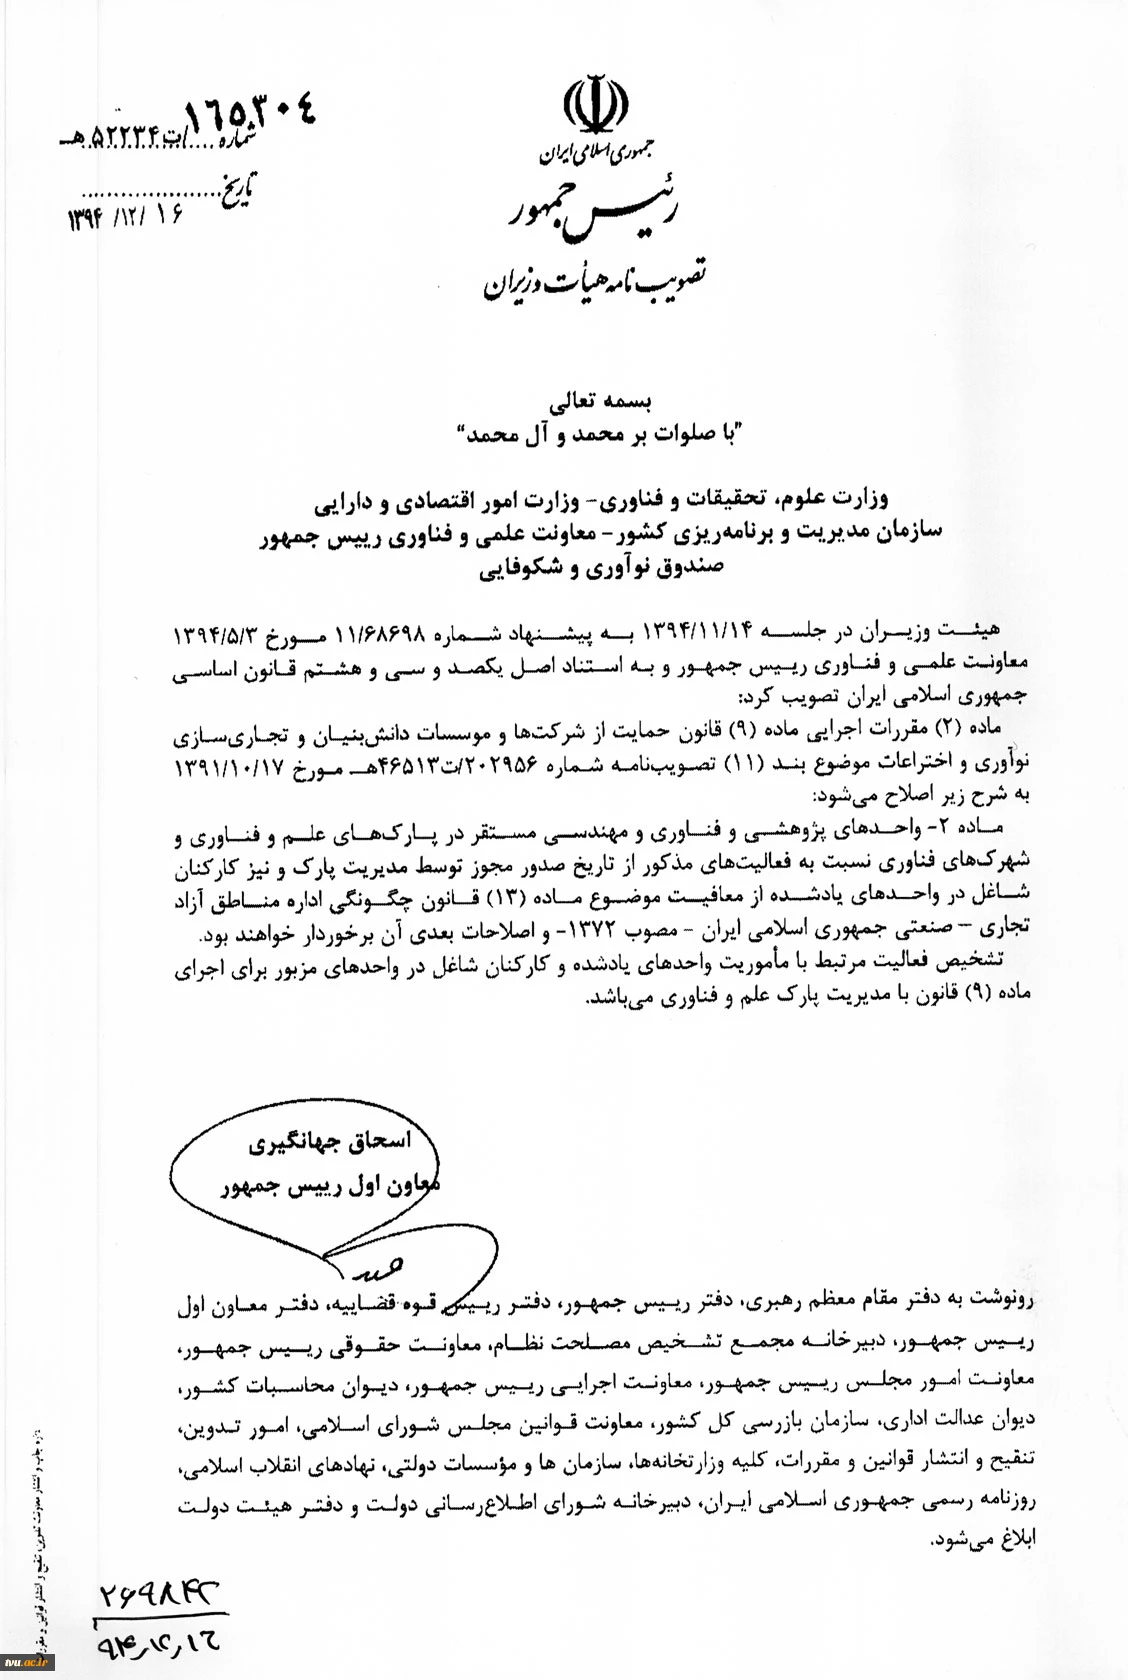 ۱۶۵۳۰۴
شماره..../ت۵۲۲۳۴هـ
تاریخ......................
۱۳۹۴/۱۲/۱۶
جمهوری اسلامی ایران
رئیس جمهور
تصویب نامه هیأت وزیران
بسمه تعالی
"با صلوات بر محمد و آل محمد"
وزارت علوم، تحقیقات و فناوری- وزارت امور اقتصادی و دارایی
سازمان مدیریت و برنامه‌ریزی کشور- معاونت علمی و فناوری رییس جمهور
صندوق نوآوری و شکوفایی
هیئت وزیران در جلسه ۱۳۹۴/۱۱/۱۴ به پیشنهاد شماره ۱۱/۶۸۶۹۸ مورخ ۱۳۹۴/۵/۳
معاونت علمی و فناوری رییس جمهور و به استناد اصل یکصد و سی و هشتم قانون اساسی
جمهوری اسلامی ایران تصویب کرد:
ماده (۲) مقررات اجرایی ماده (۹) قانون حمایت از شرکت‌ها و موسسات دانش‌بنیان و تجاری‌سازی
نوآوری و اختراعات موضوع بند (۱۱) تصویب‌نامه شماره ۲۰۲۹۵۶/ت۴۶۵۱۳هـ مورخ ۱۳۹۱/۱۰/۱۷
به شرح زیر اصلاح می‌شود:
ماده ۲- واحدهای پژوهشی و فناوری و مهندسی مستقر در پارک‌های علم و فناوری و
شهرک‌های فناوری نسبت به فعالیت‌های مذکور از تاریخ صدور مجوز توسط مدیریت پارک و نیز کارکنان
شاغل در واحدهای یادشده از معافیت موضوع ماده (۱۳) قانون چگونگی اداره مناطق آزاد
تجاری – صنعتی جمهوری اسلامی ایران - مصوب ۱۳۷۲- و اصلاحات بعدی آن برخوردار خواهند بود.
تشخیص فعالیت مرتبط با مأموریت واحدهای یادشده و کارکنان شاغل در واحدهای مزبور برای اجرای
ماده (۹) قانون با مدیریت پارک علم و فناوری می‌باشد.
اسحاق جهانگیری
معاون اول رییس جمهور
رونوشت به دفتر مقام معظم رهبری، دفتر رییس جمهور، دفتر رییس قوه قضاییه، دفتر معاون اول
رییس جمهور، دبیرخانه مجمع تشخیص مصلحت نظام، معاونت حقوقی رییس جمهور،
معاونت امور مجلس رییس جمهور، معاونت اجرایی رییس جمهور، دیوان محاسبات کشور،
دیوان عدالت اداری، سازمان بازرسی کل کشور، معاونت قوانین مجلس شورای اسلامی، امور تدوین،
تنقیح و انتشار قوانین و مقررات، کلیه وزارتخانه‌ها، سازمان ها و مؤسسات دولتی، نهادهای انقلاب اسلامی،
روزنامه رسمی جمهوری اسلامی ایران، دبیرخانه شورای اطلاع‌رسانی دولت و دفتر هیئت دولت
ابلاغ می‌شود.
۲۶۹۸۴۲
۹۴,۱۲,۱۶
tvu.ac.ir